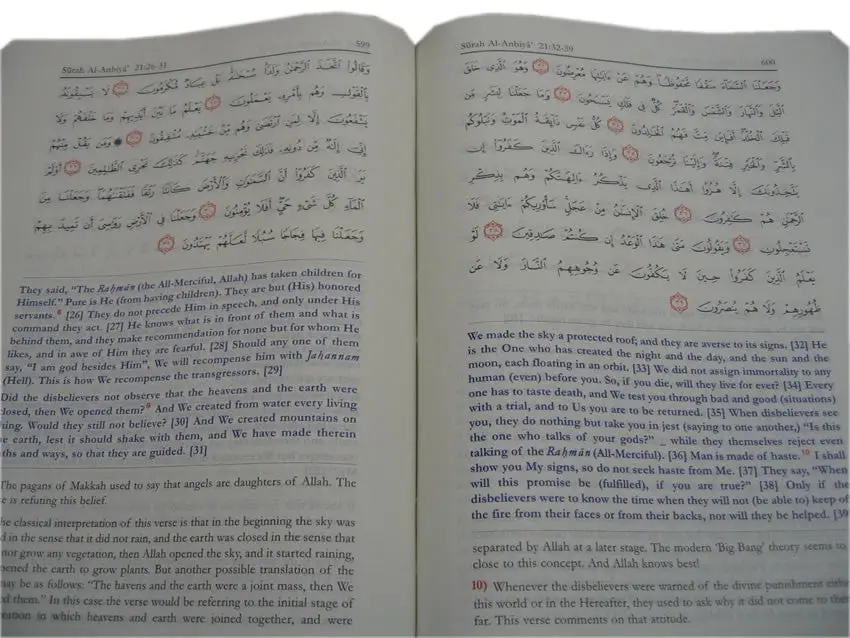 599
Sūrah Al-Anbiyā’ 21:26-31
وَقَالُوا۟ ٱتَّخَذَ ٱلرَّحْمَٰنُ وَلَدًا ۗ سُبْحَٰنَهُۥ ۚ بَلْ عِبَادٌ مُّكْرَمُونَ ٢٦ لَا يَسْبِقُونَهُۥ
بِٱلْقَوْلِ وَهُم بِأَمْرِهِۦ يَعْمَلُونَ ٢٧ يَعْلَمُ مَا بَيْنَ أَيْدِيهِمْ وَمَا خَلْفَهُمْ وَلَا
يَشْفَعُونَ إِلَّا لِمَنِ ٱرْتَضَىٰ وَهُم مِّنْ خَشْيَتِهِۦ مُشْفِقُونَ ٢٨ وَمَن يَقُلْ مِنْهُمْ
إِنِّىٓ إِلَٰهٌ مِّن دُونِهِۦ فَذَٰلِكَ نَجْزِيهِ جَهَنَّمَ ۚ كَذَٰلِكَ نَجْزِى ٱلظَّٰلِمِينَ ٢٩ أَوَلَمْ
يَرَ ٱلَّذِينَ كَفَرُوٓا۟ أَنَّ ٱلسَّمَٰوَٰتِ وَٱلْأَرْضَ كَانَتَا رَتْقًا فَفَتَقْنَٰهُمَا ۖ وَجَعَلْنَا مِنَ
ٱلْمَآءِ كُلَّ شَىْءٍ حَىٍّ ۖ أَفَلَا يُؤْمِنُونَ ٣٠ وَجَعَلْنَا فِى ٱلْأَرْضِ رَوَٰسِىَ أَن تَمِيدَ بِهِمْ
وَجَعَلْنَا فِيهَا فِجَاجًا سُبُلًا لَّعَلَّهُمْ يَهْتَدُونَ ٣١
They said, “The Raḥmān (the All-Merciful, Allah) has taken children for
Himself.” Pure is He (from having children). They are but (His) honored
servants.⁸ [26] They do not precede Him in speech, and only under His
command they act. [27] He knows what is in front of them and what is
behind them, and they make recommendation for none but for whom He
likes, and in awe of Him they are fearful. [28] Should any one of them
say, “I am god besides Him”, We will recompense him with Jahannam
(Hell). This is how We recompense the transgressors. [29]
Did the disbelievers not observe that the heavens and the earth were
closed, then We opened them?⁹ And We created from water every living
hing. Would they still not believe? [30] And We created mountains on
e earth, lest it should shake with them, and We have made therein
ths and ways, so that they are guided. [31]
The pagans of Makkah used to say that angels are daughters of Allah. The
e is refuting this belief.
he classical interpretation of this verse is that in the beginning the sky was
d in the sense that it did not rain, and the earth was closed in the sense that
not grow any vegetation, then Allah opened the sky, and it started raining,
pened the earth to grow plants. But another possible translation of the
may be as follows: “The havens and the earth were a joint mass, then We
d them.” In this case the verse would be referring to the initial stage of
eation in which heavens and earth were joined together, and were
Sūrah Al-Anbiyā’ 21:32-39
600
وَجَعَلْنَا ٱلسَّمَآءَ سَقْفًا مَّحْفُوظًا ۖ وَهُمْ عَنْ ءَايَٰتِهَا مُعْرِضُونَ ٣٢ وَهُوَ ٱلَّذِى خَلَقَ
ٱلَّيْلَ وَٱلنَّهَارَ وَٱلشَّمْسَ وَٱلْقَمَرَ ۖ كُلٌّ فِى فَلَكٍ يَسْبَحُونَ ٣٣ وَمَا جَعَلْنَا لِبَشَرٍ مِّن
قَبْلِكَ ٱلْخُلْدَ ۖ أَفَإِي۟ن مِّتَّ فَهُمُ ٱلْخَٰلِدُونَ ٣٤ كُلُّ نَفْسٍ ذَآئِقَةُ ٱلْمَوْتِ ۗ وَنَبْلُوكُم
بِٱلشَّرِّ وَٱلْخَيْرِ فِتْنَةً ۖ وَإِلَيْنَا تُرْجَعُونَ ٣٥ وَإِذَا رَءَاكَ ٱلَّذِينَ كَفَرُوٓا۟ إِن
يَتَّخِذُونَكَ إِلَّا هُزُوًا أَهَٰذَا ٱلَّذِى يَذْكُرُ ءَالِهَتَكُمْ وَهُم بِذِكْرِ
ٱلرَّحْمَٰنِ هُمْ كَٰفِرُونَ ٣٦ خُلِقَ ٱلْإِنسَٰنُ مِنْ عَجَلٍ ۚ سَأُو۟رِيكُمْ ءَايَٰتِى فَلَا
تَسْتَعْجِلُونِ ٣٧ وَيَقُولُونَ مَتَىٰ هَٰذَا ٱلْوَعْدُ إِن كُنتُمْ صَٰدِقِينَ ٣٨ لَوْ
يَعْلَمُ ٱلَّذِينَ كَفَرُوا۟ حِينَ لَا يَكُفُّونَ عَن وُجُوهِهِمُ ٱلنَّارَ وَلَا عَن
ظُهُورِهِمْ وَلَا هُمْ يُنصَرُونَ ٣٩
We made the sky a protected roof; and they are averse to its signs. [32] He
is the One who has created the night and the day, and the sun and the
moon, each floating in an orbit. [33] We did not assign immortality to any
human (even) before you. So, if you die, will they live for ever? [34] Every
one has to taste death, and We test you through bad and good (situations)
with a trial, and to Us you are to be returned. [35] When disbelievers see
you, they do nothing but take you in jest (saying to one another,) “Is this
the one who talks of your gods?” _ while they themselves reject even
talking of the Raḥmān (All-Merciful). [36] Man is made of haste.¹⁰ I shall
show you My signs, so do not seek haste from Me. [37] They say, “When
will this promise be (fulfilled), if you are true?” [38] Only if the
disbelievers were to know the time when they will not (be able to) keep of
the fire from their faces or from their backs, nor will they be helped. [39
separated by Allah at a later stage. The modern ‘Big Bang’ theory seems to
close to this concept. And Allah knows best!
10) Whenever the disbelievers were warned of the divine punishment eithe
this world or in the Hereafter, they used to ask why it did not come to the
far. This verse comments on that attitude.